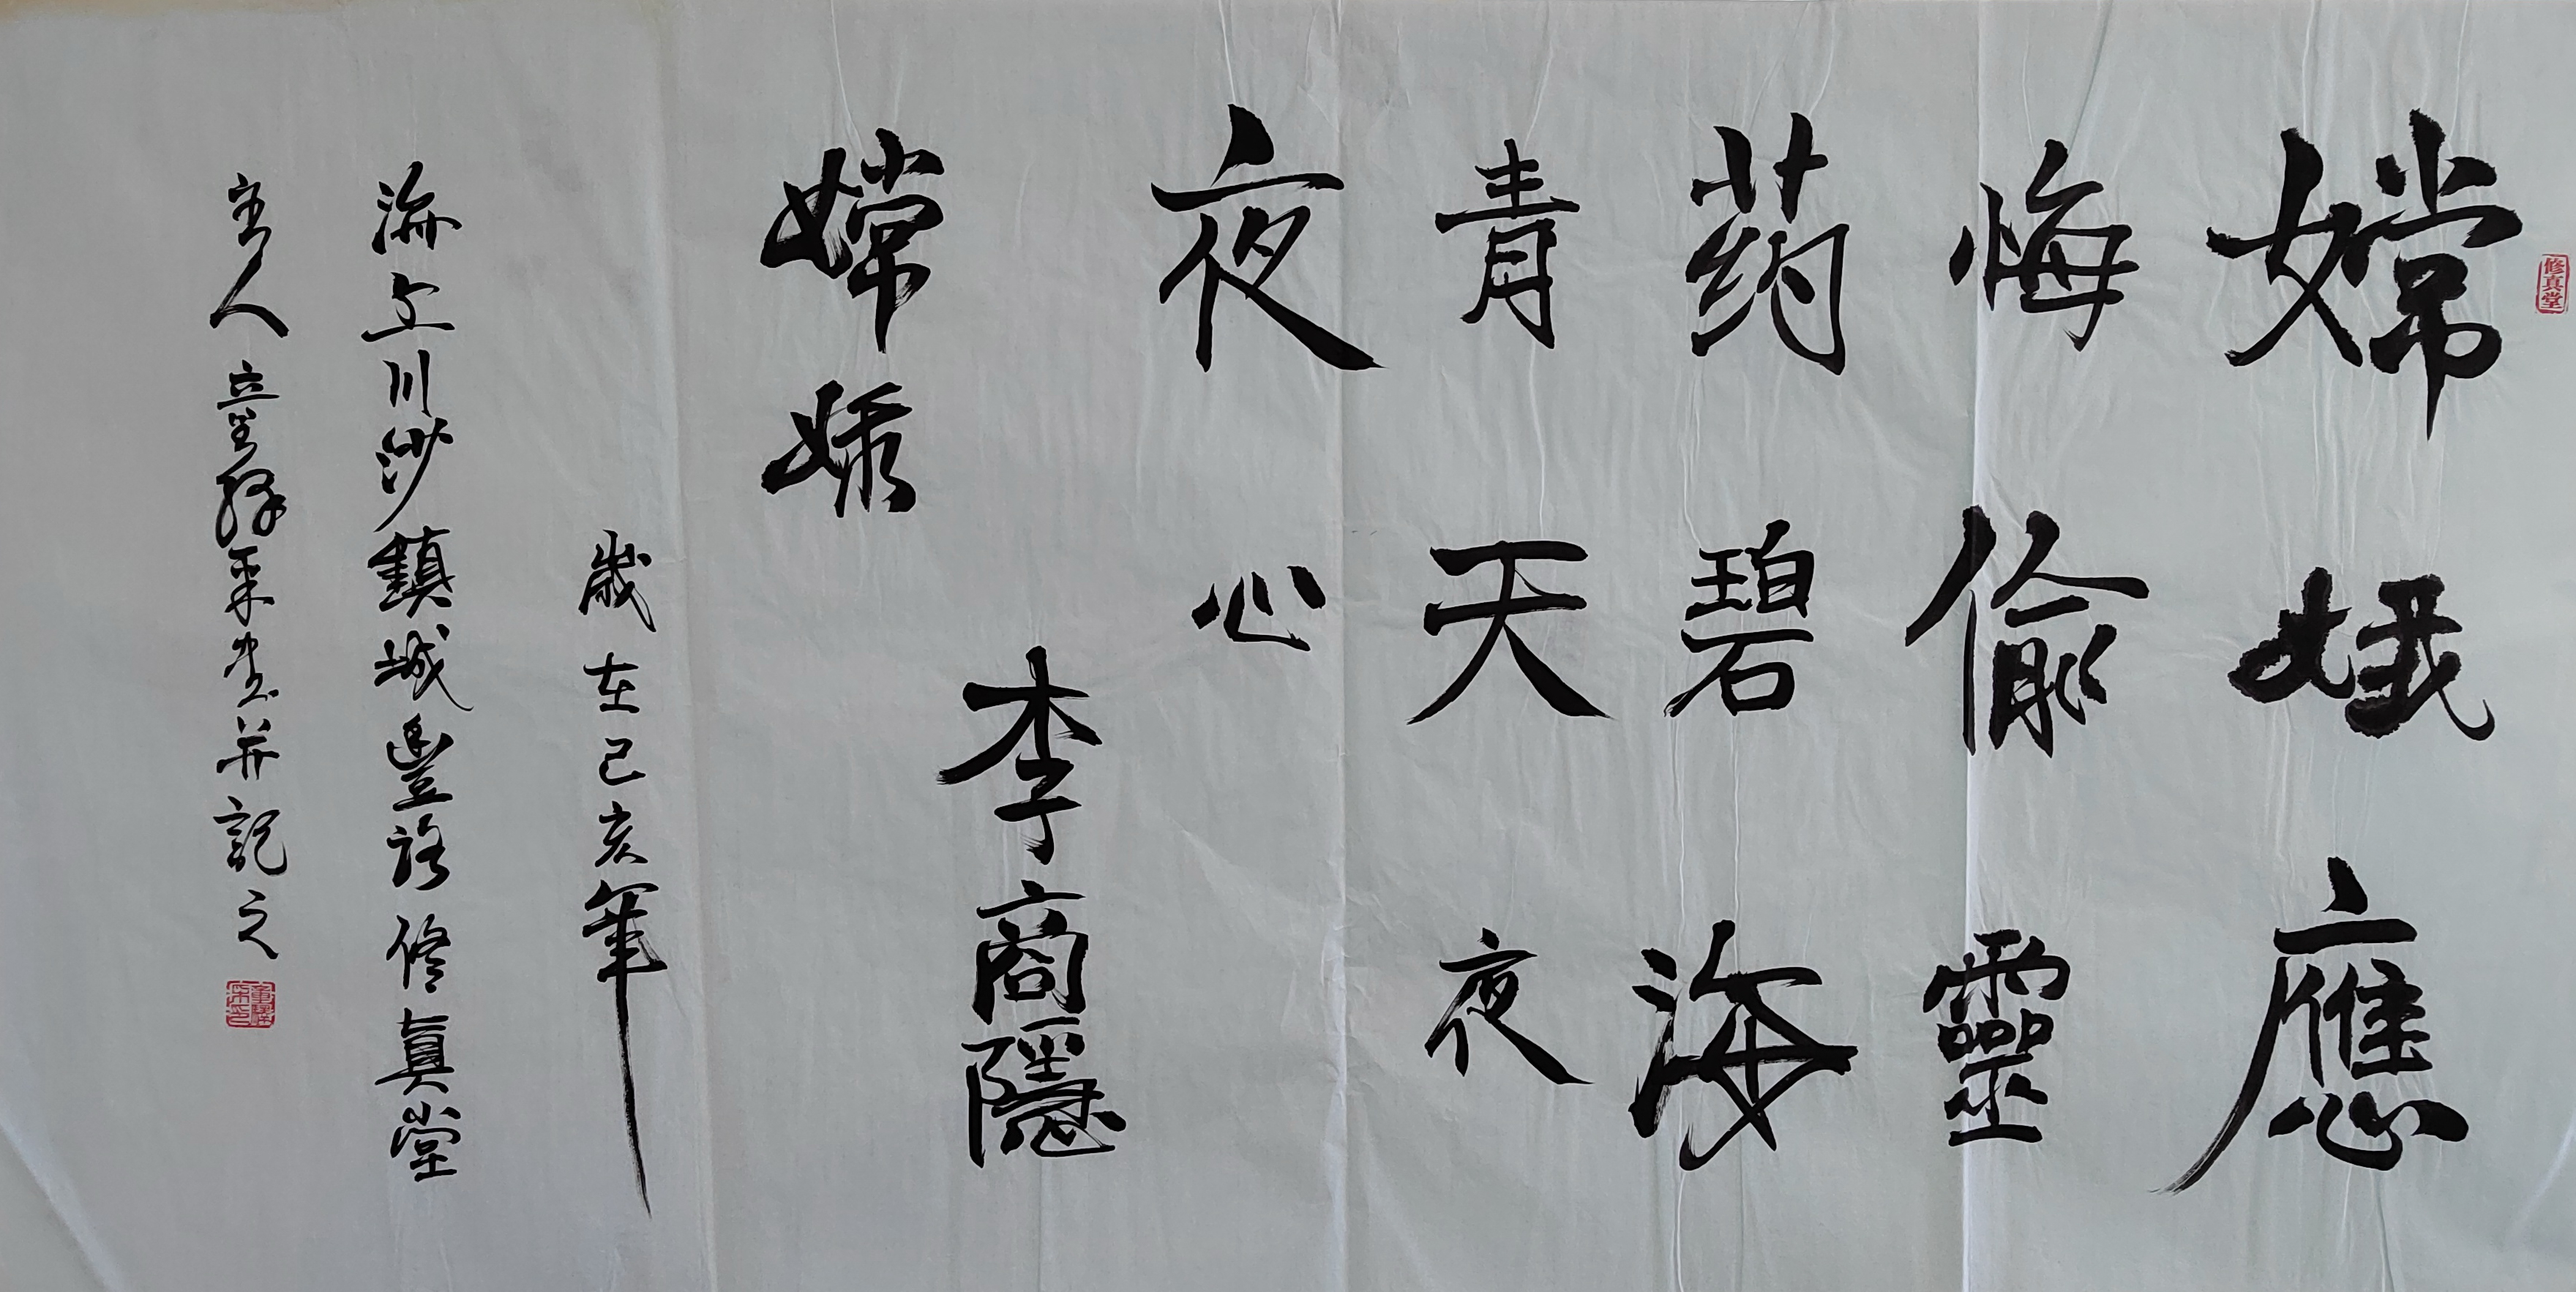 修真堂
嫦娥應
悔偷靈
药碧海
青天夜
夜心
李商隱
嫦娥
歲在己亥年
海上川沙鎮城豐路修真堂
主人童采書并記之